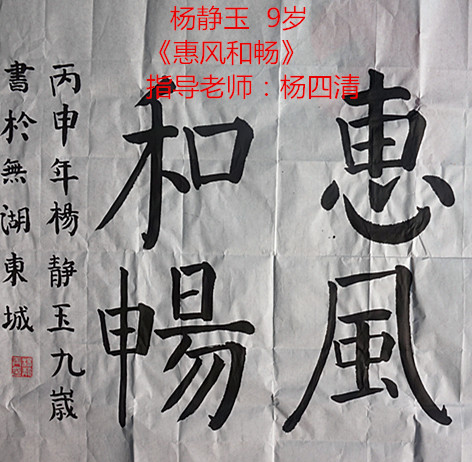 杨静玉 9岁
《惠风和畅》
指导老师：杨四清
惠風
和暢
丙申年楊静玉九歲
書於無湖東城